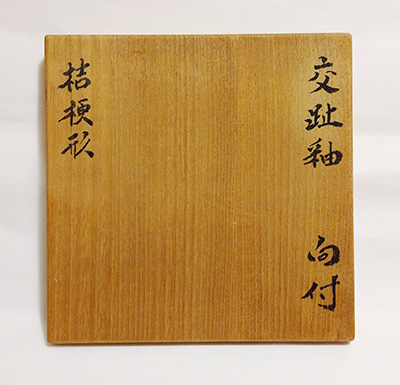 交趾釉 向付
桔梗形